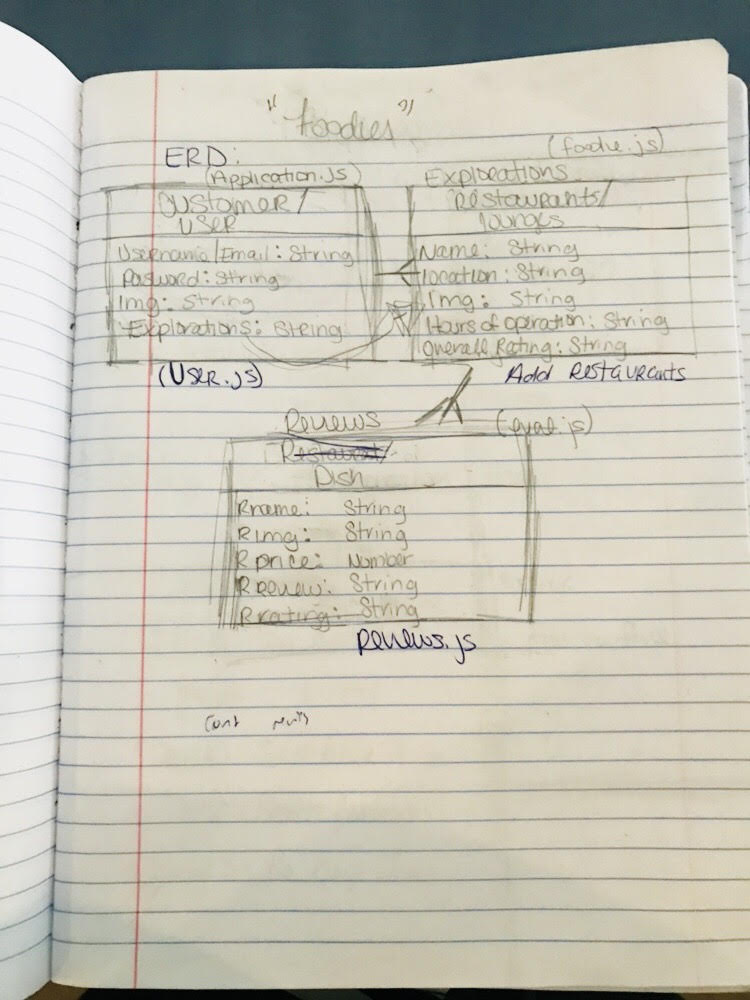 "foodies"
ERD:
(Application.js)
Customer/
User
Username/Email: String
Password: String
Img: String
Explorations: String
(User.js)
(foodie.js)
Explorations
Restaurants/
lounges
Name: String
location: String
Img: String
Hours of operation: String
Overall Rating: String
Add Restaurants
Reviews
Dish
Rname: String
Rimg: String
Rprice: Number
Rreview: String
Rrating: String
Reviews.js